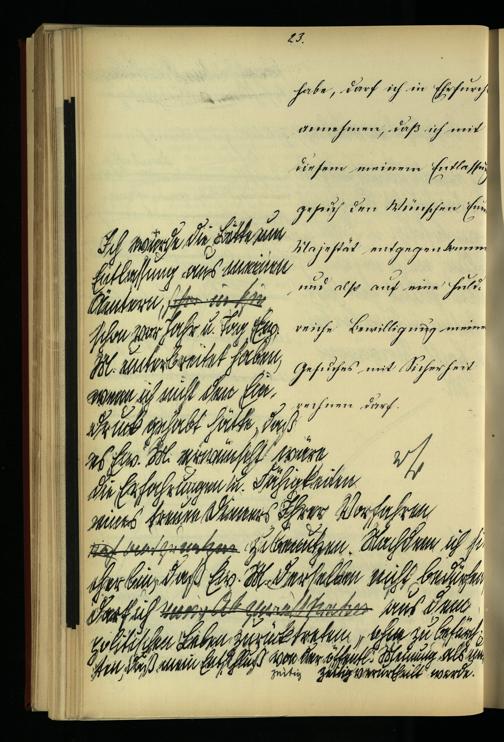 23.
habe, darf ich in Ehrfurcht
annehmen, daß ich mit
diesem meinem Entlassungs
gesuch den Wünschen Eurer
Majestät entgegenkomme
und also auf eine huld-
reiche Bewilligung meines
Gesuches mit Sicherheit
rechnen darf.
Ich würde die Bitte um
Entlassung aus meinen
Ämtern,
schon vor Jahr u. Tag Ew.
M. unterbreitet haben,
wenn ich nicht den Ein-
druck gehabt hätte, daß
es Ew. M. erwünscht wäre
die Erfahrungen u. Fähigkeiten
eines treuen Dieners Ihrer Vorfahren
zu benutzen. Nachdem ich si
cher bin, daß Ew. M. derselben nicht bedürfen
darf ich aus dem
politischen Leben zurücktreten, ohne zu befürch
ten, daß mein Entschluß von der öffentl. Meinung als un
zeitig verurtheilt werde.
zeitig